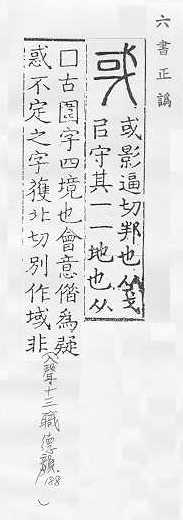 六書正譌
或 或影逼切邦也从戈
㠯守其一一地也从
囗古圍字四境也會意借為疑
惑不定之字獲北切別作域非
(入聲十三職德韻. 188)